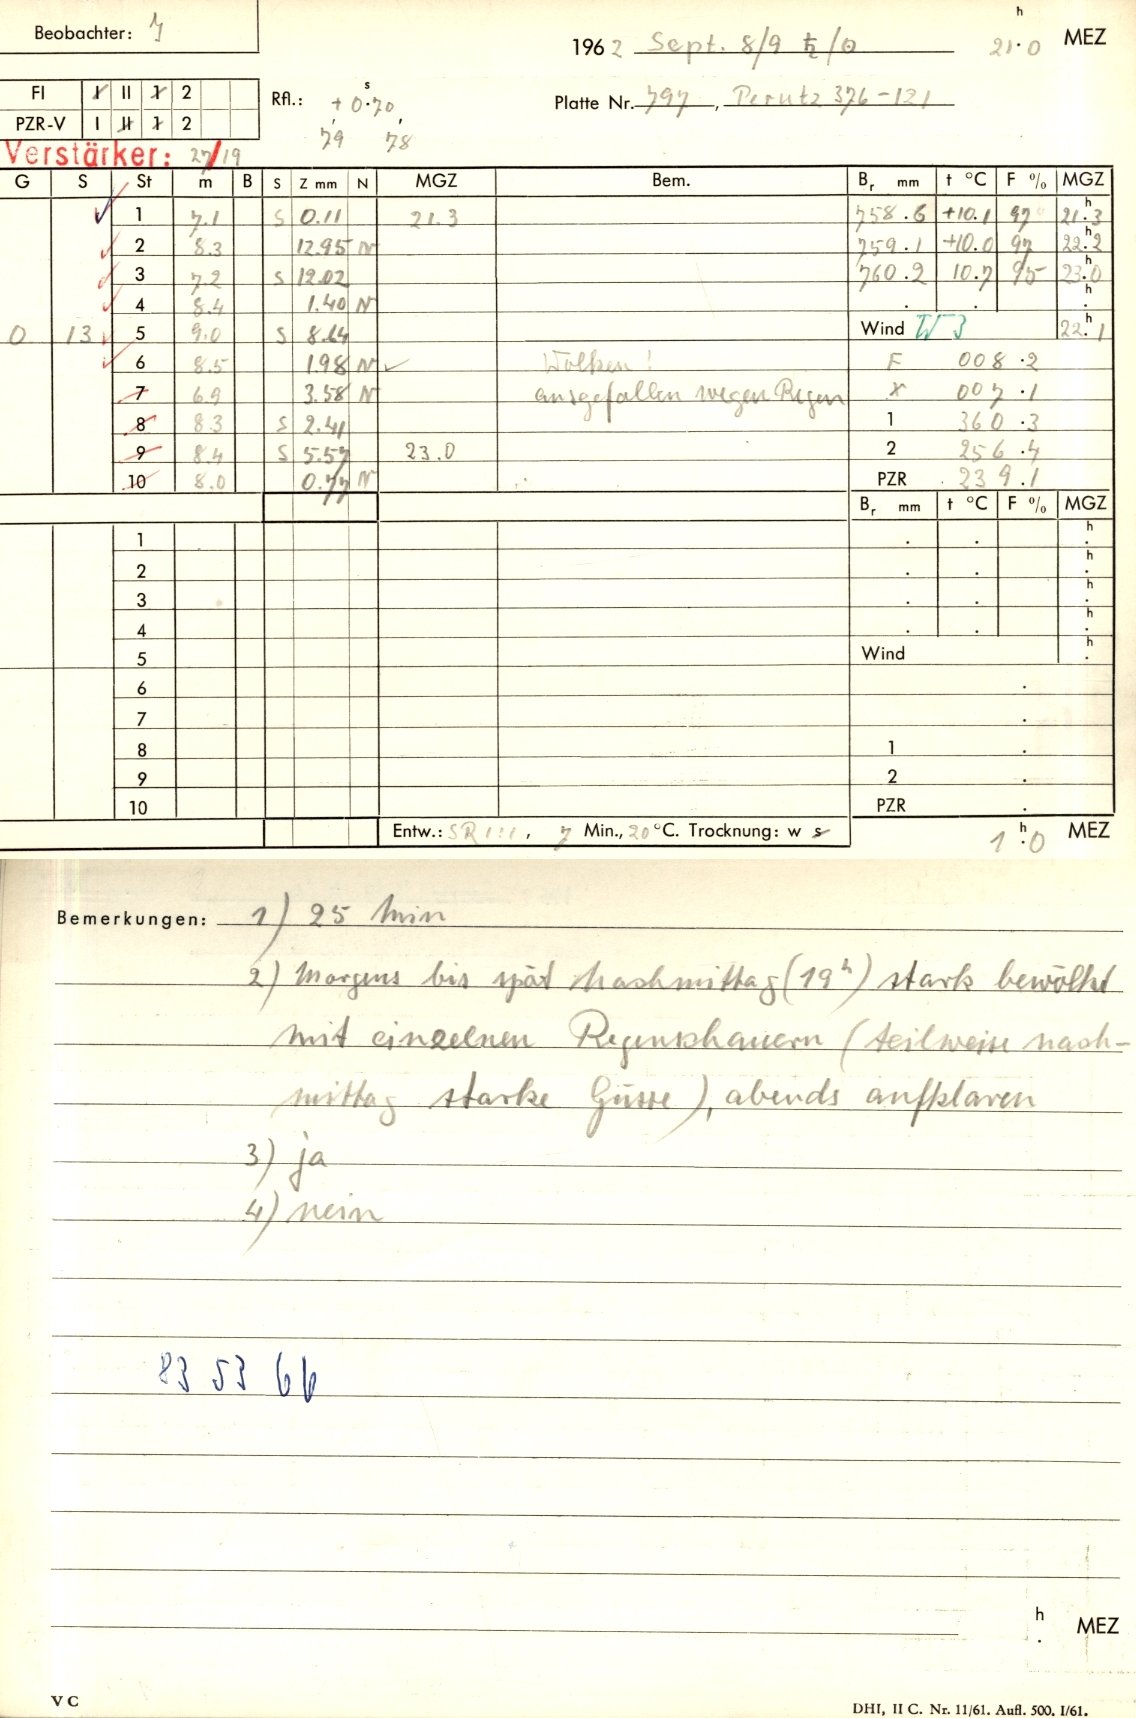 Beobachter:
1962 Sept. 8/9 ♄/⊙ 21h.0 MEZ
FI I II 1 2
Rfl.: + 0s.70
Platte Nr. 797, Perutz 376-121
PZR-V I II 1 2
79 78
Verstärker: 27/19
G S St m B S Z mm N MGZ Bem. Br mm t °C F % MGZ
1 7.1 S 0.11 21.3 758.6 +10.1 97 21h.3
2 8.3 12.95 N 759.1 +10.0 97 22h.2
3 7.2 S 12.02 760.2 10.7 95 23h.0
4 8.4 1.40 N . . h.
0 13 5 9.0 S 8.64 Wind W 3 22h.1
6 8.5 1.98 N ✓ Wolken! F 008.2
7 6.9 3.58 N ausgefallen wegen Regen x 007.1
8 8.3 S 2.41 1 360.3
9 8.4 S 5.57 23.0 2 256.4
10 8.0 0.77 N PZR 239.1
Br mm t °C F % MGZ
1 . . h.
2 . . h.
3 . . h.
4 . . h.
5 Wind h.
6 .
7 .
8 1 .
9 2 .
10 PZR .
Entw.: SR 1:1, 7 Min., 20 °C. Trocknung: w s 1h.0 MEZ
Bemerkungen: 1) 25 Min
2) Morgens bis spät Nachmittag (19h) stark bewölkt
mit einzelnen Regenschauern (teilweise nach-
mittag starke Güsse), abends aufklaren
3) ja
4) nein
83 53 66
h. MEZ
V C
DHI, II C. Nr. 11/61. Aufl. 500. I/61.